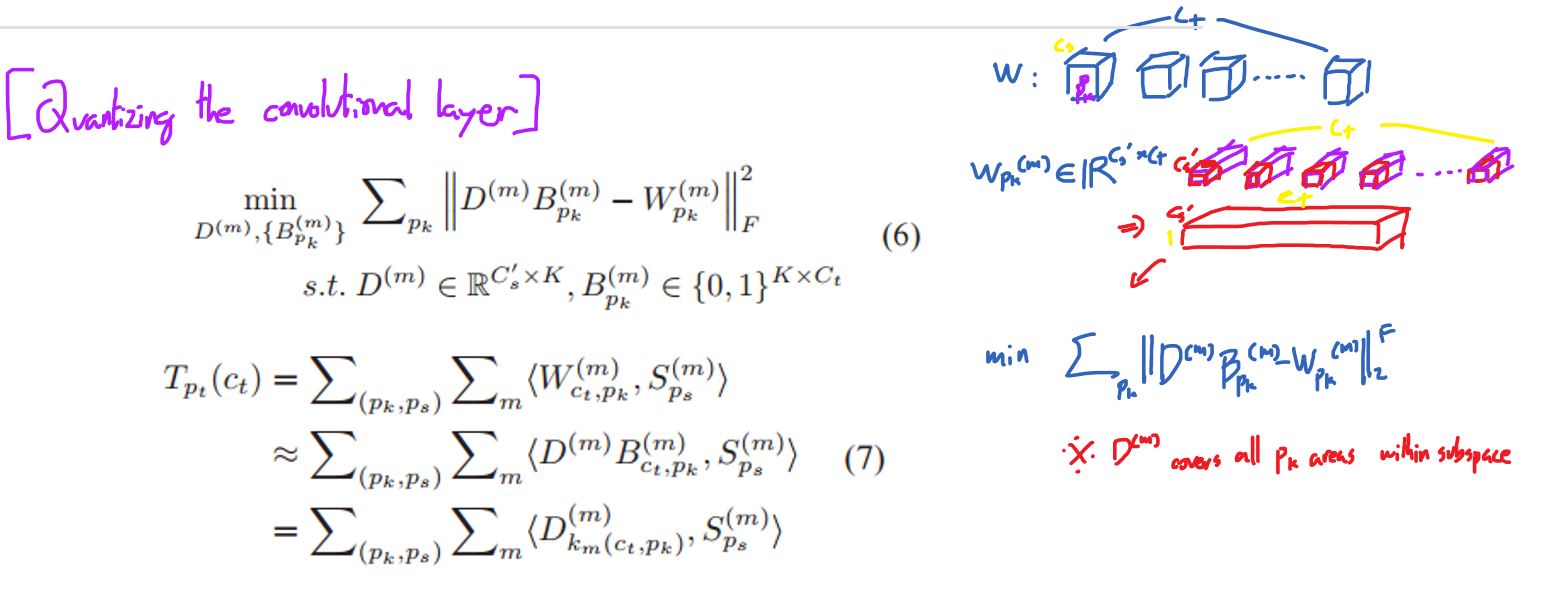 [Quantizing the convolutional layer]
min_{D^{(m)},\{B_{p_k}^{(m)}\}} \sum_{p_k} \left\| D^{(m)} B_{p_k}^{(m)} - W_{p_k}^{(m)} \right\|_F^2 (6)
s.t. D^{(m)} ∈ ℝ^{C'_s×K}, B_{p_k}^{(m)} ∈ {0,1}^{K×C_t}
T_{p_t}(c_t) = \sum_{(p_k,p_s)} \sum_m ⟨W_{c_t,p_k}^{(m)}, S_{p_s}^{(m)}⟩
≈ \sum_{(p_k,p_s)} \sum_m ⟨D^{(m)} B_{c_t,p_k}^{(m)}, S_{p_s}^{(m)}⟩ (7)
= \sum_{(p_k,p_s)} \sum_m ⟨D_{k_m(c_t,p_k)}^{(m)}, S_{p_s}^{(m)}⟩
Ct
Cs
W : Pk ·····
Ct
W_{Pk}^{(m)} ∈ ℝ^{Cs'×Ct} Cs' ·····
Ct
⇒ Cs'
1
min \sum_{Pk} || D^{(m)} B_{Pk}^{(m)} - W_{Pk}^{(m)} ||_2^F
※. D^{(m)} covers all Pk areas within subspace